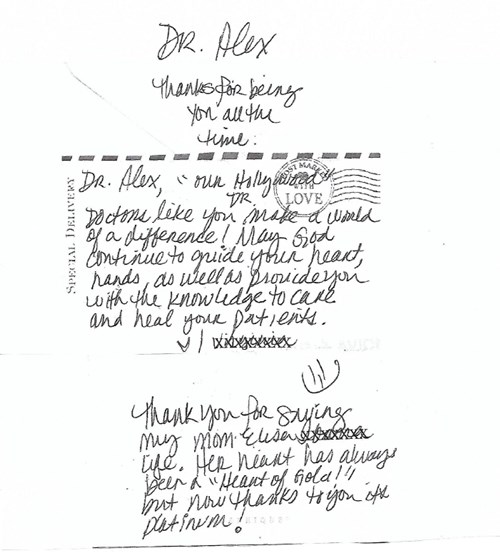 DR. Alex
Thanks for being
you all the
time.
SPECIAL DELIVERY
POST MARKED
WITH
LOVE
Dr. Alex, "our Hollywood"
DR.
Doctors like you make a world
of a difference! May God
continue to guide your heart,
hands, as well as provide you
with the knowledge to care
and heal your patients.
Thank you for saying
my mom Elisa
life. Her heart has always
been a "Heart of Gold!"
but now thanks to you its
platinum.